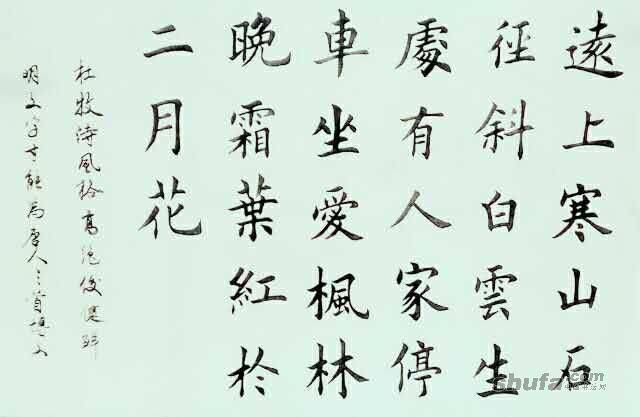 遠上寒山石
徑斜白雲生
處有人家停
車坐愛楓林
晚霜葉紅於
二月花
杜牧詩風格高絕俊
明文字為唐人之
shufa.com